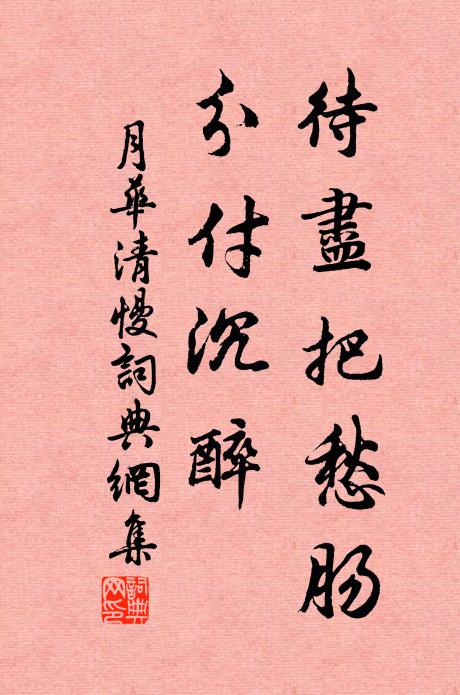 待盡把愁肠
分付沉醉
月華清慢詞典網集
詞典網印